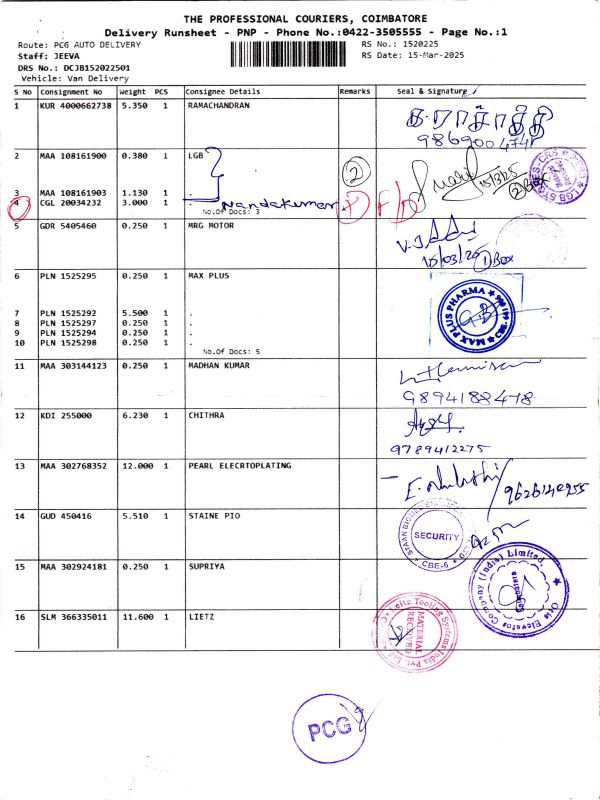 THE PROFESSIONAL COURIERS, COIMBATORE
Delivery Runsheet - PNP - Phone No.:0422-3505555 - Page No.:1
Route: PC6 AUTO DELIVERY RS No.: 1520225
Staff: JEEVA RS Date: 15-Mar-2025
DRS No.: DCJB152022501
Vehicle: Van Delivery
S No Consignment No Weight PCS Consignee Details Remarks Seal & Signature
1 KUR 4000662738 5.350 1 RAMACHANDRAN
2 MAA 108161900 0.380 1 LGB 2 15/3/25
3 MAA 108161903 1.130 1 . 2 Box
4 CGL 20034232 3.000 1 . Nandakumar F/D
No.Of Docs: 3
5 GDR 5405460 0.250 1 MRG MOTOR
15/03/25 1 Box
6 PLN 1525295 0.250 1 MAX PLUS
MAX PLUS PHARMA
7 PLN 1525292 5.500 1 .
8 PLN 1525297 0.250 1 .
9 PLN 1525294 0.250 1 .
10 PLN 1525298 0.250 1 .
No.Of Docs: 5
11 MAA 303144123 0.250 1 MADHAN KUMAR
9894188478
12 KDI 255000 6.230 1 CHITHRA
9789412275
13 MAA 302768352 12.000 1 PEARL ELECRTOPLATING
14 GUD 450416 5.510 1 STAINE PIO
SECURITY
CBE-6
15 MAA 302924181 0.250 1 SUPRIYA
Otis Elevator Company (India) Limited.
Coimbatore
16 SLM 366335011 11.600 1 LIETZ
Leitz Tooling Systems India Pvt. Ltd
MATERIAL
RECEIVED
PCG